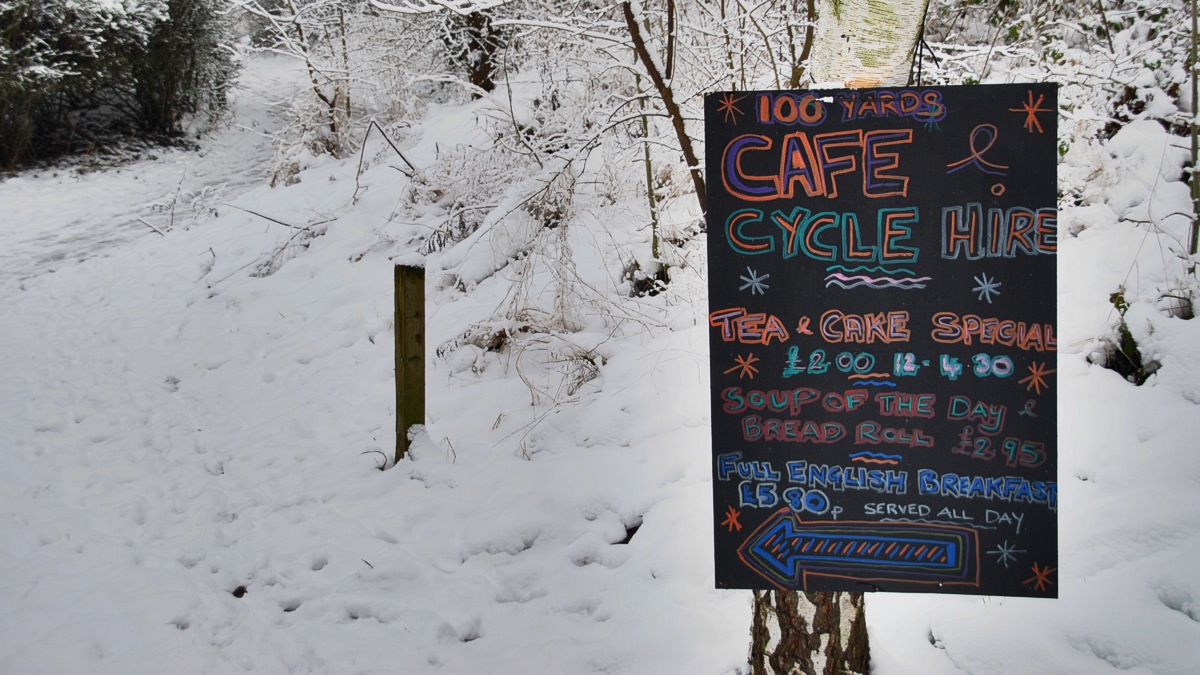 100 YARDS
CAFE &
CYCLE HIRE
TEA & CAKE SPECIAL
£2.00 12-4.30
SOUP OF THE DAY &
BREAD ROLL £2.95
FULL ENGLISH BREAKFAST
£5.80p SERVED ALL DAY